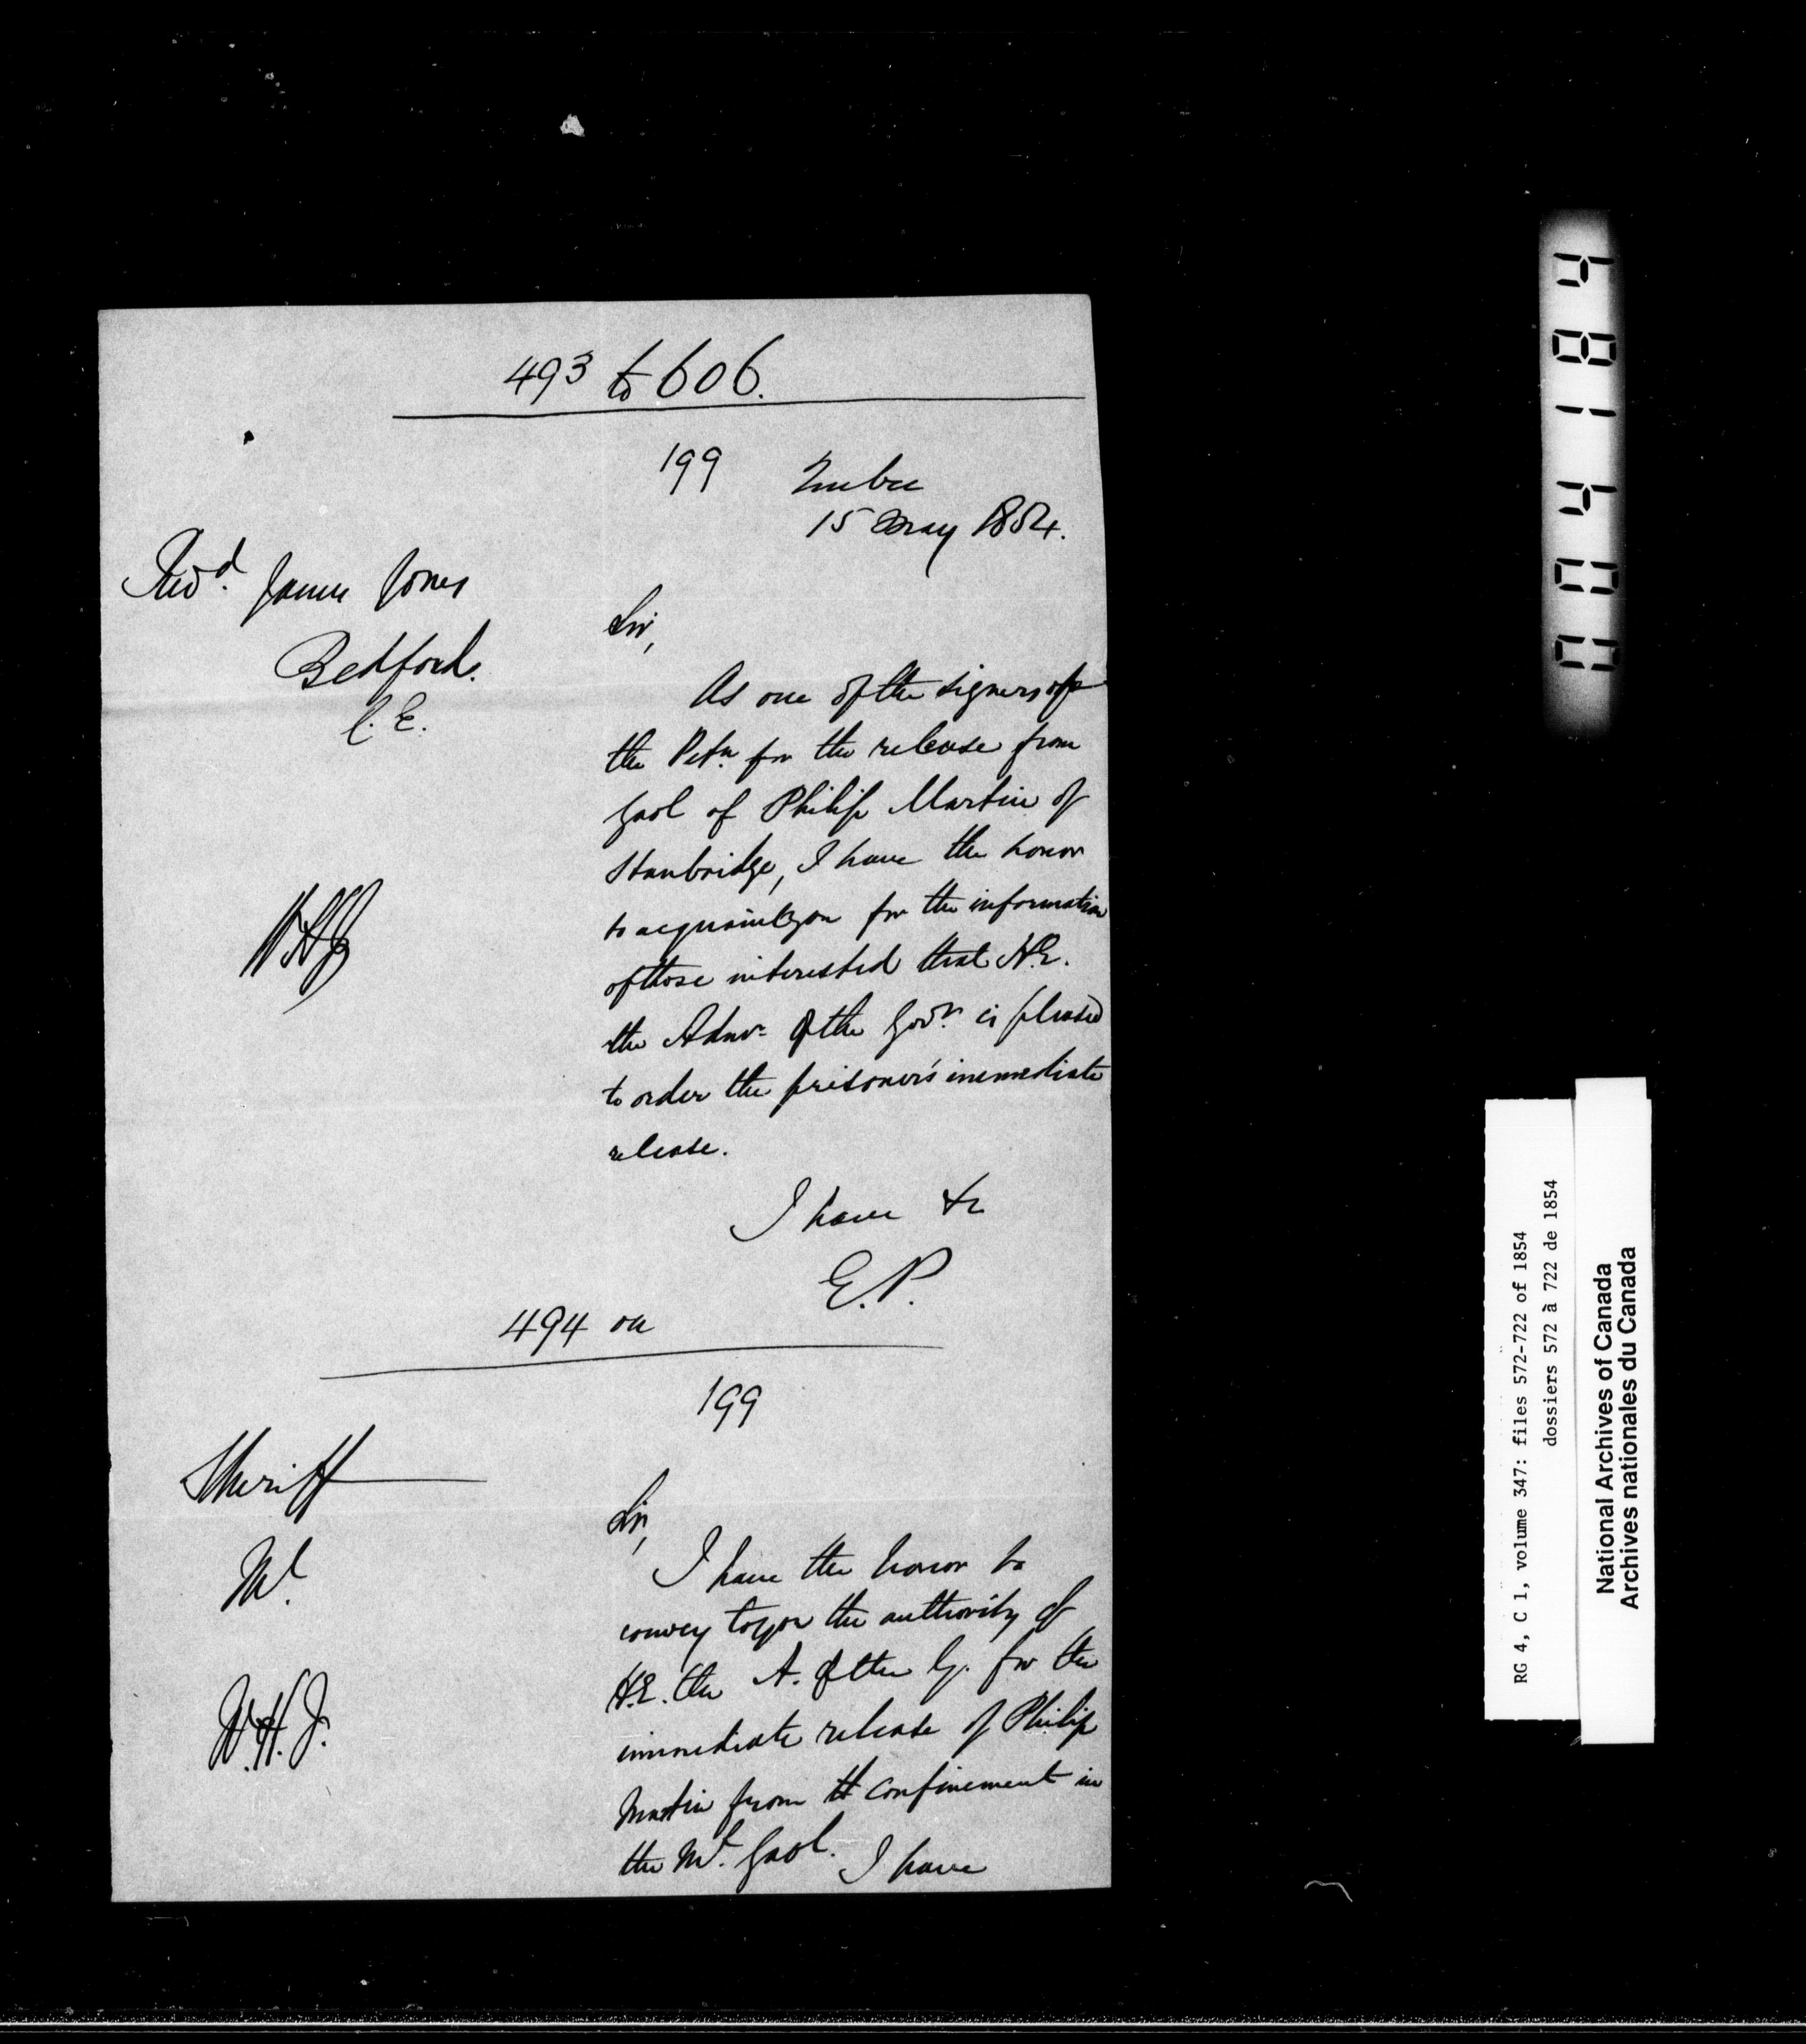 493 to 606.
199
Quebec
15 May 1854.
Revd. James Jones
Bedford.
C. E.
Sir,
As one of the signers of
the Petn. for the release from
Gaol of Philip Martin of
Stanbridge, I have the honor
to acquaint you for the information
of those interested that H.E.
the Admr. of the Govt. is pleased
to order the prisoner's immediate
release.
I have &c
E.P.
WHJ
494 on
199
Sheriff
Ml.
W.H.J.
Sir,
I have the honor to
convey to you the authority of
H.E. the A. of the G. for the
immediate release of Philip
Martin from confinement in
the Ml. Gaol. I have
RG 4, C 1, volume 347: files 572-722 of 1854
dossiers 572 à 722 de 1854
National Archives of Canada
Archives nationales du Canada